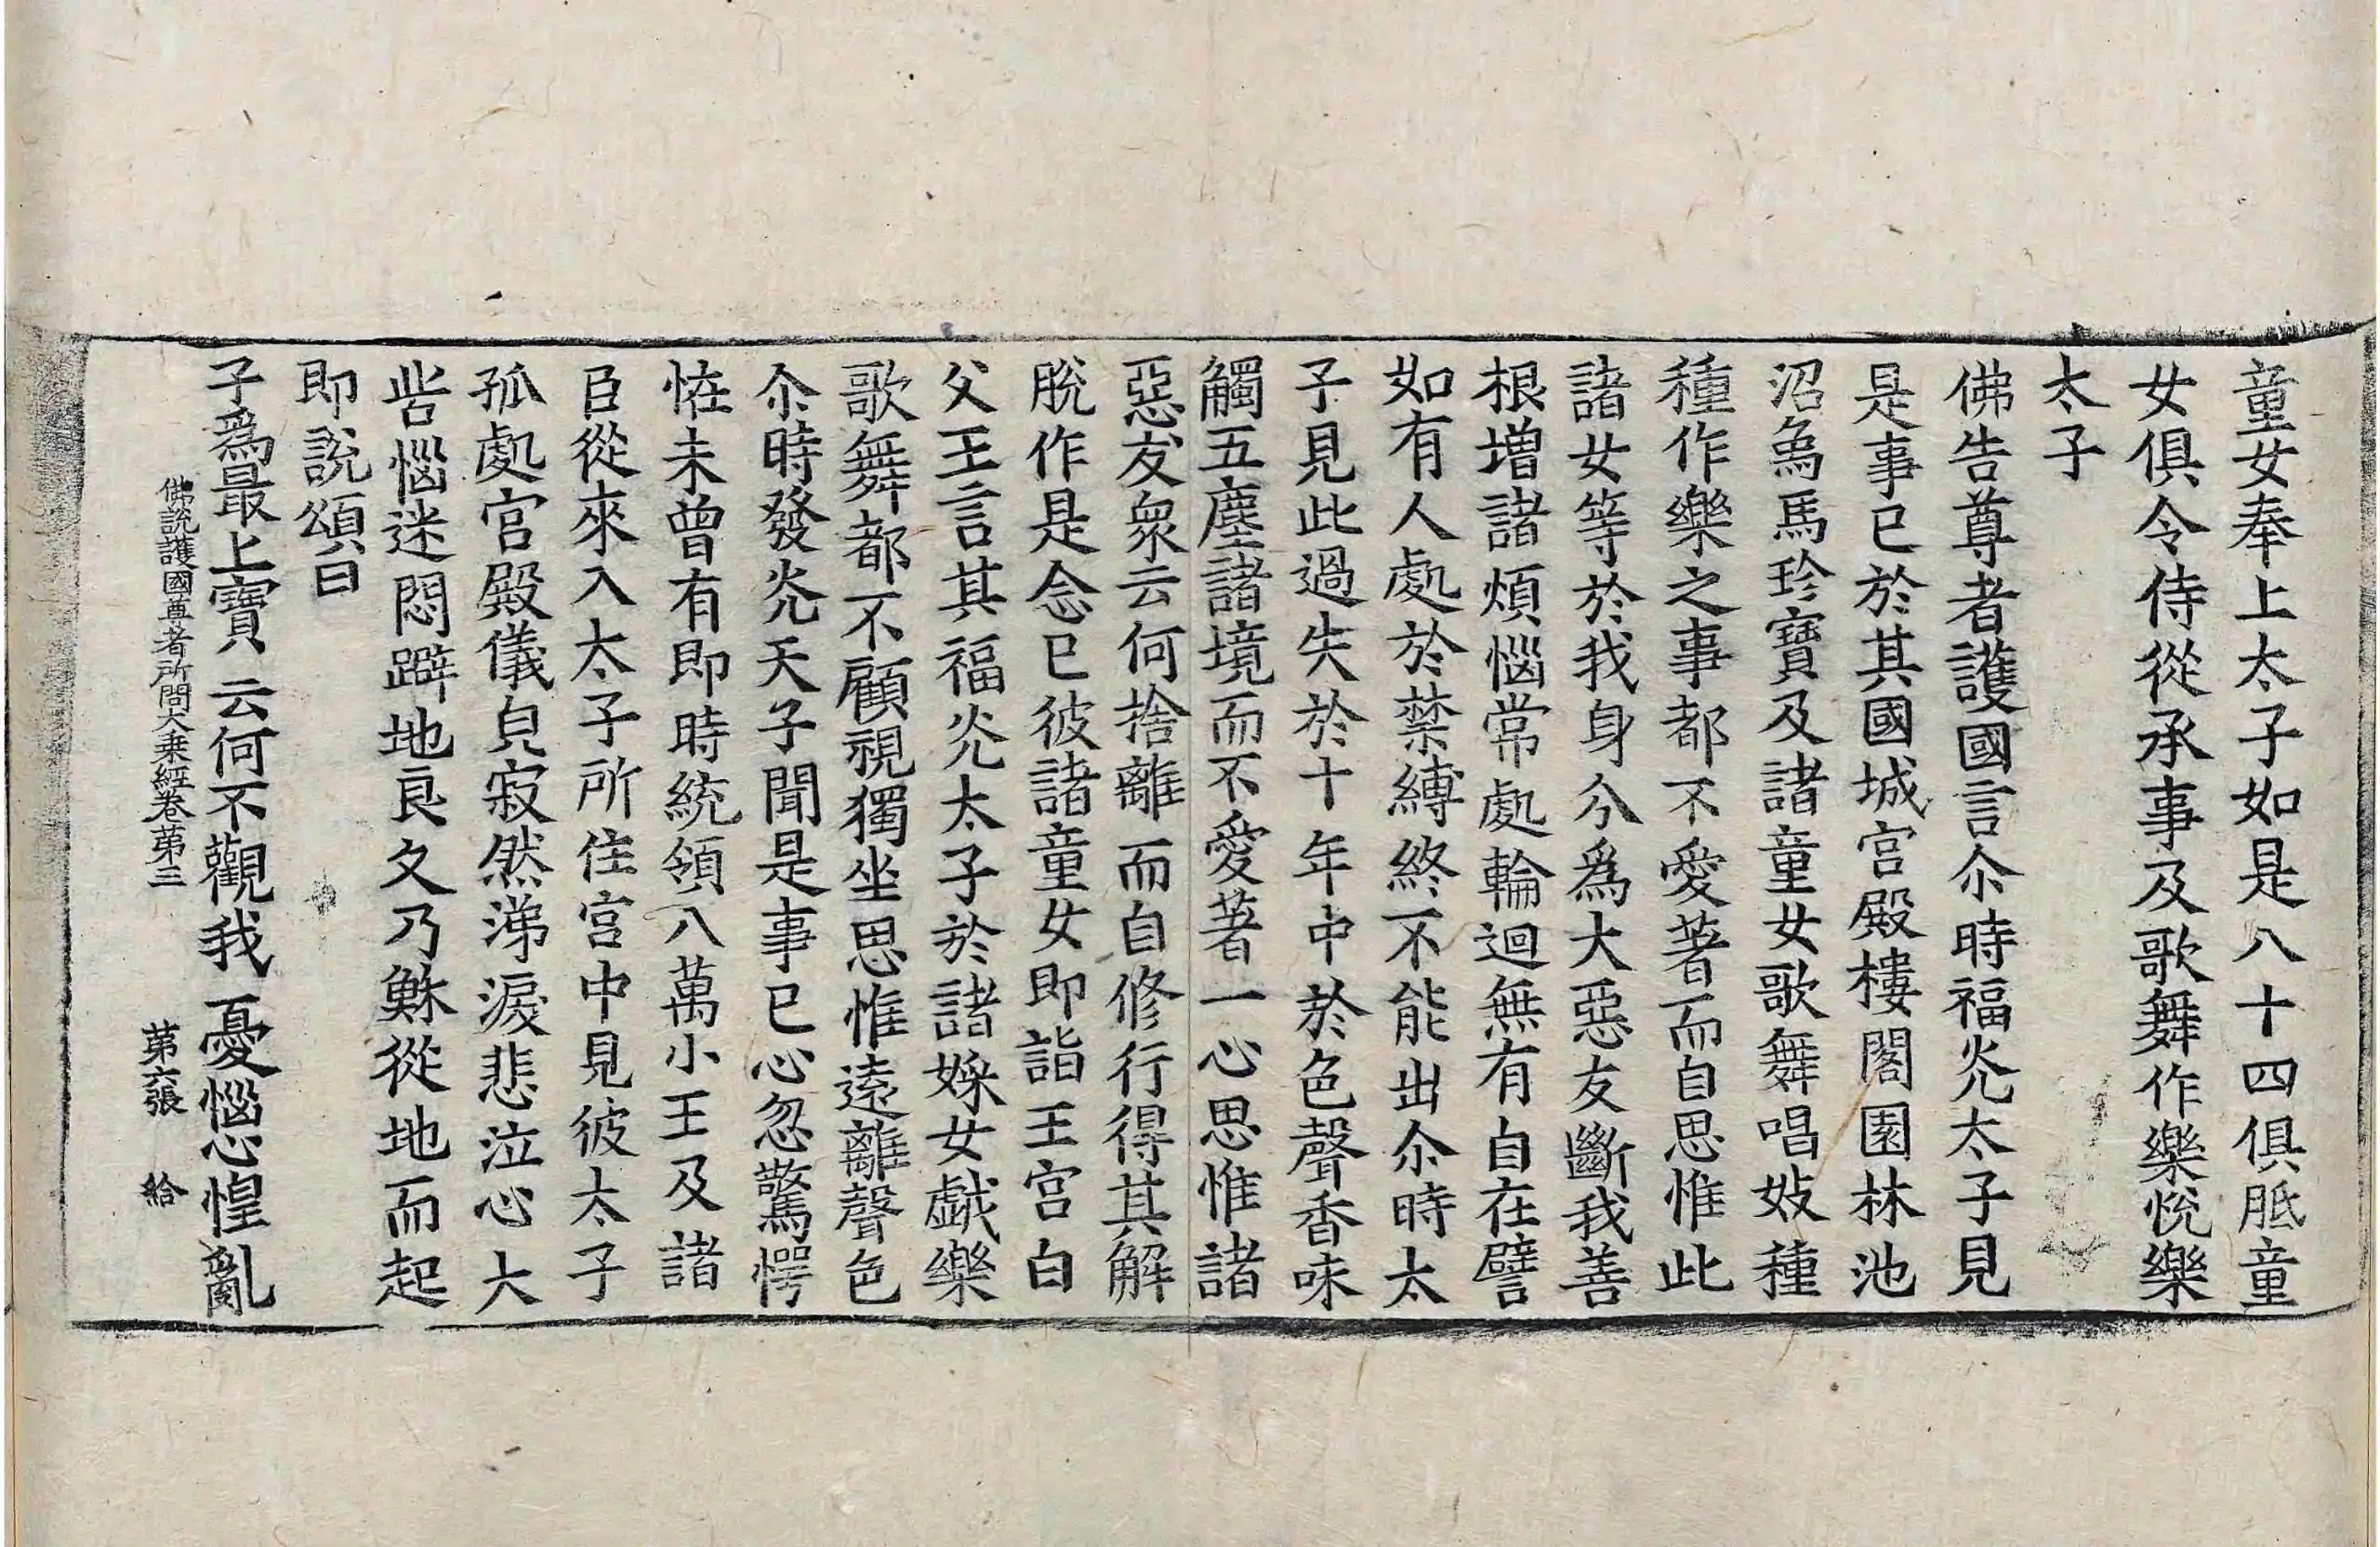 童女奉上太子如是八十四俱胝童
女俱令侍從承事及歌舞作樂悅樂
太子
佛告尊者護國言尒時福光太子見
是事已於其國城宮殿樓閣園林池
沼象馬珍寶及諸童女歌舞唱妓種
種作樂之事都不愛著而自思惟此
諸女等於我身分爲大惡友斷我善
根增諸煩惱常處輪迴無有自在譬
如有人處於禁縛終不能出尒時太
子見此過失於十年中於色聲香味
觸五塵諸境而不愛著一心思惟諸
惡友衆云何捨離而自修行得其解
脫作是念已彼諸童女即詣王宮白
父王言其福光太子於諸婇女戱樂
歌舞都不顧視獨坐思惟遠離聲色
尒時發光天子聞是事已心忽驚愕
恠未曾有即時統領八萬小王及諸
臣從來入太子所住宮中見彼太子
孤處宮殿儀皃寂然涕淚悲泣心大
呰惱迷悶躃地良久乃穌從地而起
即說頌曰
子爲最上寶 云何不觀我 憂惱心惶亂
佛說護國尊者所問大乘經卷第三 第六張 給